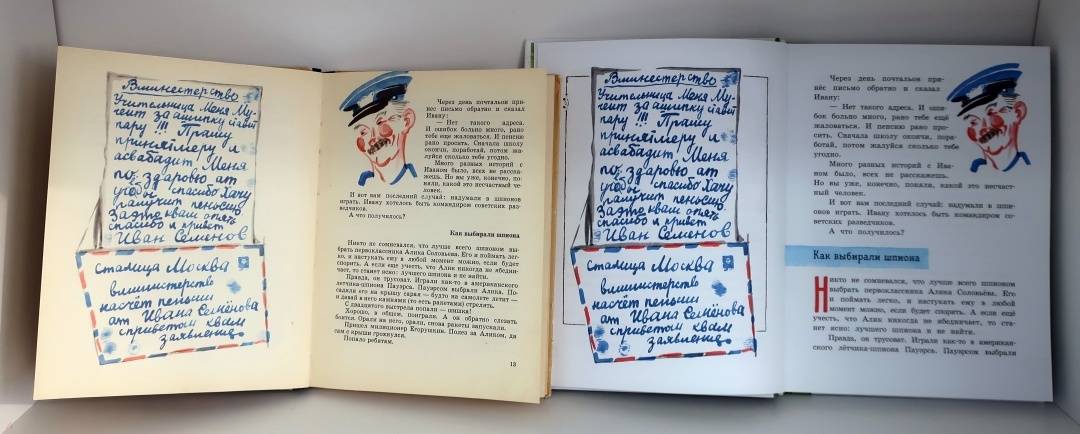 Вминестерство
Учительница Меня Му-
чеит за ашипку ставит
пару !!! Прашу
принятьмеры и
асвабадит Меня
по здаровью ат
учобы спасибо Хачу
палучит пеньсию
Заэто квам опять
спасибо и привет
Иван Семёнов
сталица Москва
вминистерство
насчёт пеньсии
ат Ивана Семёнова
сприветом квам
заявление.
Через день почтальон при-
нёс письмо обратно и сказал
Ивану:
— Нет такого адреса.
И ошибок больно много, рано
тебе ещё жаловаться. И пенсию
рано просить. Сначала школу
окончи, поработай, потом жа-
луйся сколько тебе угодно.
Много разных историй с
Иваном было, всех не расска-
жешь. Но вы уже, конечно, по-
няли, какой это несчастный че-
ловек.
И вот вам последний случай: надумали в шпионов
играть. Ивану хотелось быть командиром советских раз-
ведчиков.
А что получилось?
Как выбирали шпиона
Никто не сомневался, что лучше всего шпионом вы-
брать первоклассника Алика Соловьёва. Его и поймать лег-
ко, и настукать ему в любой момент можно, если будет
спорить. А если ещё учесть, что Алик никогда не ябедни-
чает, то станет ясно: лучшего шпиона и не найти.
Правда, он трусоват. Играли как-то в американского
лётчика-шпиона Пауэрса. Пауэрсом выбрали Алика. По-
садили его на крышу сарая — будто на самолёте летит —
и давай в него камнями (то есть ракетами) стрелять.
С двадцатого выстрела попали — шишка!
Хорошо, в общем, поиграли. А он обратно слезать
боится. Орали на него, орали, снова ракеты запускали.
Пришёл милиционер Егорушкин. Полез за Аликом, да
сам с крыши грохнулся.
Попало ребятам.
13
Вминестерство
Учительница Меня Му-
чеит за ашипку ставит
пару !!! Прашу
принятьмеры и
асвабадит Меня
по здаровью ат
учобы спасибо Хачу
палучит пеньсию
Заэто квам опять
спасибо и привет
Иван Семёнов
сталица Москва
вминистерство
насчёт пеньсии
ат Ивана Семёнова
сприветом квам
заявление.
Через день почтальон при-
нёс письмо обратно и сказал
Ивану:
— Нет такого адреса. И оши-
бок больно много, рано тебе ещё
жаловаться. И пенсию рано про-
сить. Сначала школу окончи, пора-
ботай, потом жалуйся сколько тебе
угодно.
Много разных историй с Ива-
ном было, всех не расскажешь.
Но вы уже, конечно, поняли, какой это несчаст-
ный человек.
И вот вам последний случай: надумали в
шпионов играть. Ивану хотелось быть командиром со-
ветских разведчиков.
А что получилось?
Как выбирали шпиона
Никто не сомневался, что лучше всего шпионом
выбрать первоклассника Алика Соловьёва. Его
и поймать легко, и настукать ему в любой
момент можно, если будет спорить. А если ещё
учесть, что Алик никогда не ябедничает, то ста-
нет ясно: лучшего шпиона и не найти.
Правда, он трусоват. Играли как-то в американ-
ского лётчика-шпиона Пауэрса. Пауэрсом выбрали